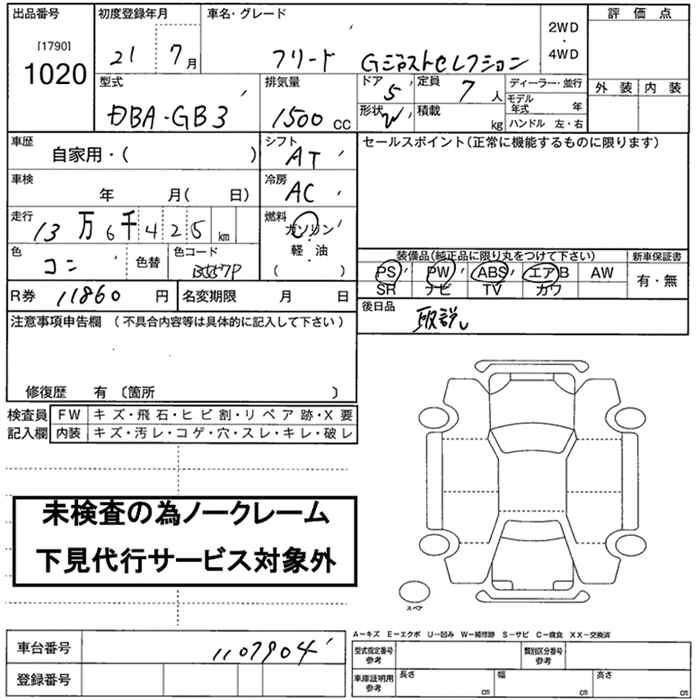 出品番号 初度登録年月 車名・グレード 評価点
[1790]
1020 21 7月 フリード Gジャストセレクション 2WD・4WD
型式 排気量 ドア 定員 ディーラー・並行 外装 内装
DBA-GB3 1500cc 5 7人 モデル年式 年
形状 W 積載 kg ハンドル 左・右
車歴 シフト セールスポイント(正常に機能するものに限ります)
自家用・( ) AT
車検 冷房
年 月( 日) AC
走行 燃料
13万6千425km ガソリン
軽・油
( )
色 色替 色コード 装備品(純正品に限り丸をつけて下さい) 新車保証書
コン B557P PS PW ABS エアB AW 有・無
SR ナビ TV カワ
R券 11860円 名変期限 月 日 後日品
取説
注意事項申告欄(不具合内容等は具体的に記入して下さい)
修復歴 有〔箇所 〕
検査員 FW キズ・飛石・ヒビ割・リペア跡・X要
記入欄 内装 キズ・汚レ・コゲ・穴・スレ・キレ・破レ
未検査の為ノークレーム
下見代行サービス対象外
スペア
A−キズ E−エクボ U−凹み W−補修跡 S−サビ C−腐食 XX−交換済
車台番号 1107904 型式指定番号 参考 類別区分番号 参考
登録番号 車庫証明用 参考 長さ cm 幅 cm 高さ cm